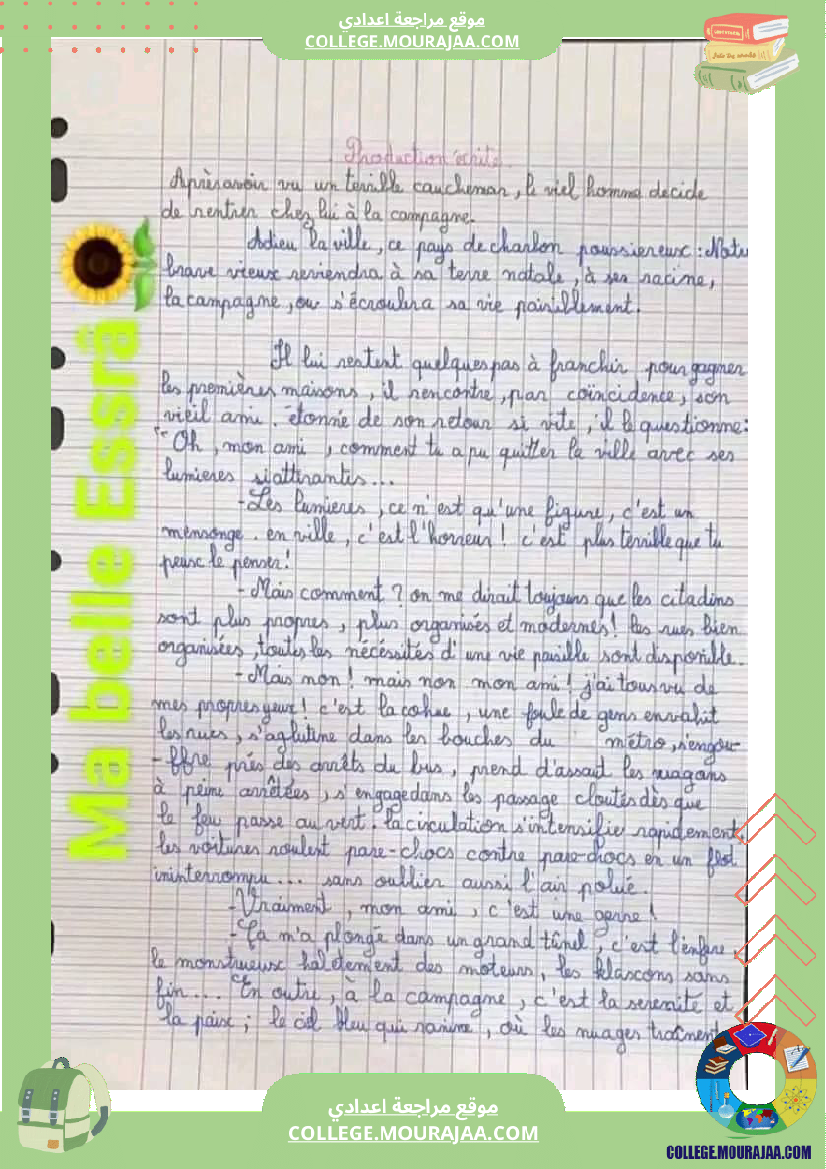 موقع مراجعة اعدادي
COLLEGE.MOURAJAA.COM
Production écrite.
Après avoir vu un terrible cauchemar, le viel homme decide
de rentrer chez lui à la campagne.
Adieu la ville, ce pays de charbon poussiereux : Notre
brave vieux reviendra à sa terre natale, à ses racine,
la campagne, ou s'écroulera sa vie paisiblement.
Il lui restent quelques pas à franchir pour gagner
les premières maisons, il rencontre, par coïncidence, son
vieil ami. étonné de son retour si vite, il le questionne:
"- Oh, mon ami, comment tu a pu quitter la ville avec ses
lumieres si attirantes...
- Les lumieres, ce n'est qu'une figure, c'est un
mensonge. en ville, c'est l'horreur ! c'est plus terrible que tu
peux le penser!
- Mais comment ? on me dirait toujours que les citadins
sont plus propres, plus organisés et modernes! les rues bien
organisées, toutes les nécéssités d'une vie paisible sont disponible.
- Mais non ! mais non mon ami ! j'ai tous vu de
mes propres yeux ! c'est la cohue, une foule de gens envahit
les rues, s'aglutine dans les bouches du métro, s'engou-
-ffre près des arrêts du bus, prend d'assaut les wagans
à peine arrêtées, s'engage dans les passage cloutés dès que
le feu passe au vert. la circulation s'intensifie rapidement,
les voitures roulent pare-chocs contre pare-chocs en un flot
ininterrompu... sans oublier aussi l'air polué.
- Vraiment, mon ami, c'est une genne !
- Ça m'a plongé dans un grand tûnel, c'est l'enfere,
le monstrueux halètement des moteurs, les klascons sans
fin... En outre, à la campagne, c'est la serenité et
la paix ; le ciel bleu qui ranime, où les nuages traînent
Ma belle Essrâ
موقع مراجعة اعدادي
COLLEGE.MOURAJAA.COM
COLLEGE.MOURAJAA.COM